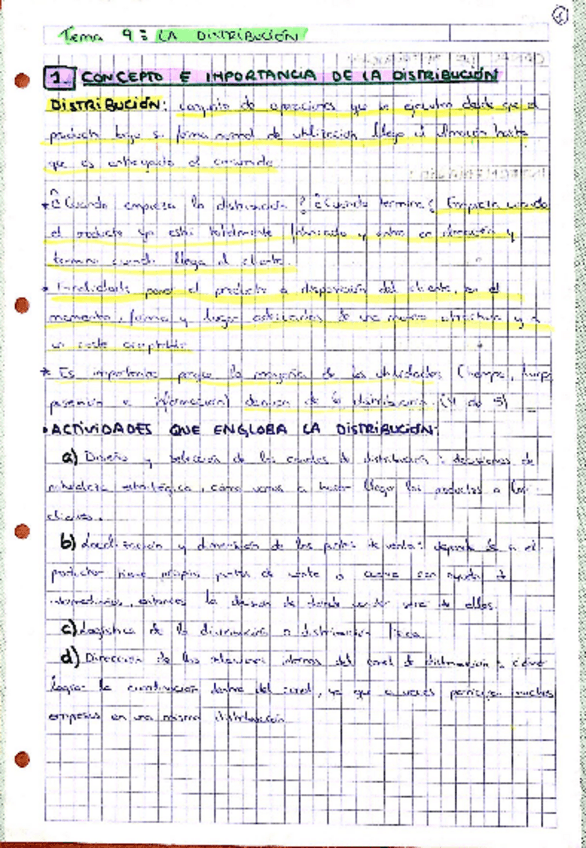 Tema 9: LA DISTRIBUCIÓN
1. CONCEPTO E IMPORTANCIA DE LA DISTRIBUCIÓN
DISTRIBUCIÓN: conjunto de operaciones que se ejecutan desde que el
producto bajo su forma normal de utilización llega al almacén hasta
que es entregado al consumidor
¿Cuándo empieza la distribución? ¿Cuándo termina? Empieza cuando
el producto ya está totalmente fabricado y entra en almacén y
termina cuando llega al cliente.
para el producto a disposición del cliente, en el
momento, forma y lugar de una manera y a
un coste aceptable
* Es importante porque la mayoría de las utilidades (tiempo, lugar,
posesión e información) derivan de la distribución (4 de 5)
• ACTIVIDADES QUE ENGLOBA LA DISTRIBUCIÓN:
a) Diseño y selección de los canales de distribución: decisiones de
naturaleza estratégica, cómo vamos a hacer llegar los productos a los
clientes.
b) Localización y dimensión de los puntos de venta: depende de si el
productor tiene propios puntos de venta o cuenta con ayuda de
intermediarios, entonces la decisión de donde vender será de ellos
c) Logística de la distribución o distribución física
d) Dirección de las relaciones internas del canal de distribución: cómo
lograr la coordinación dentro del canal, ya que a veces participan muchas
empresas en una misma distribución